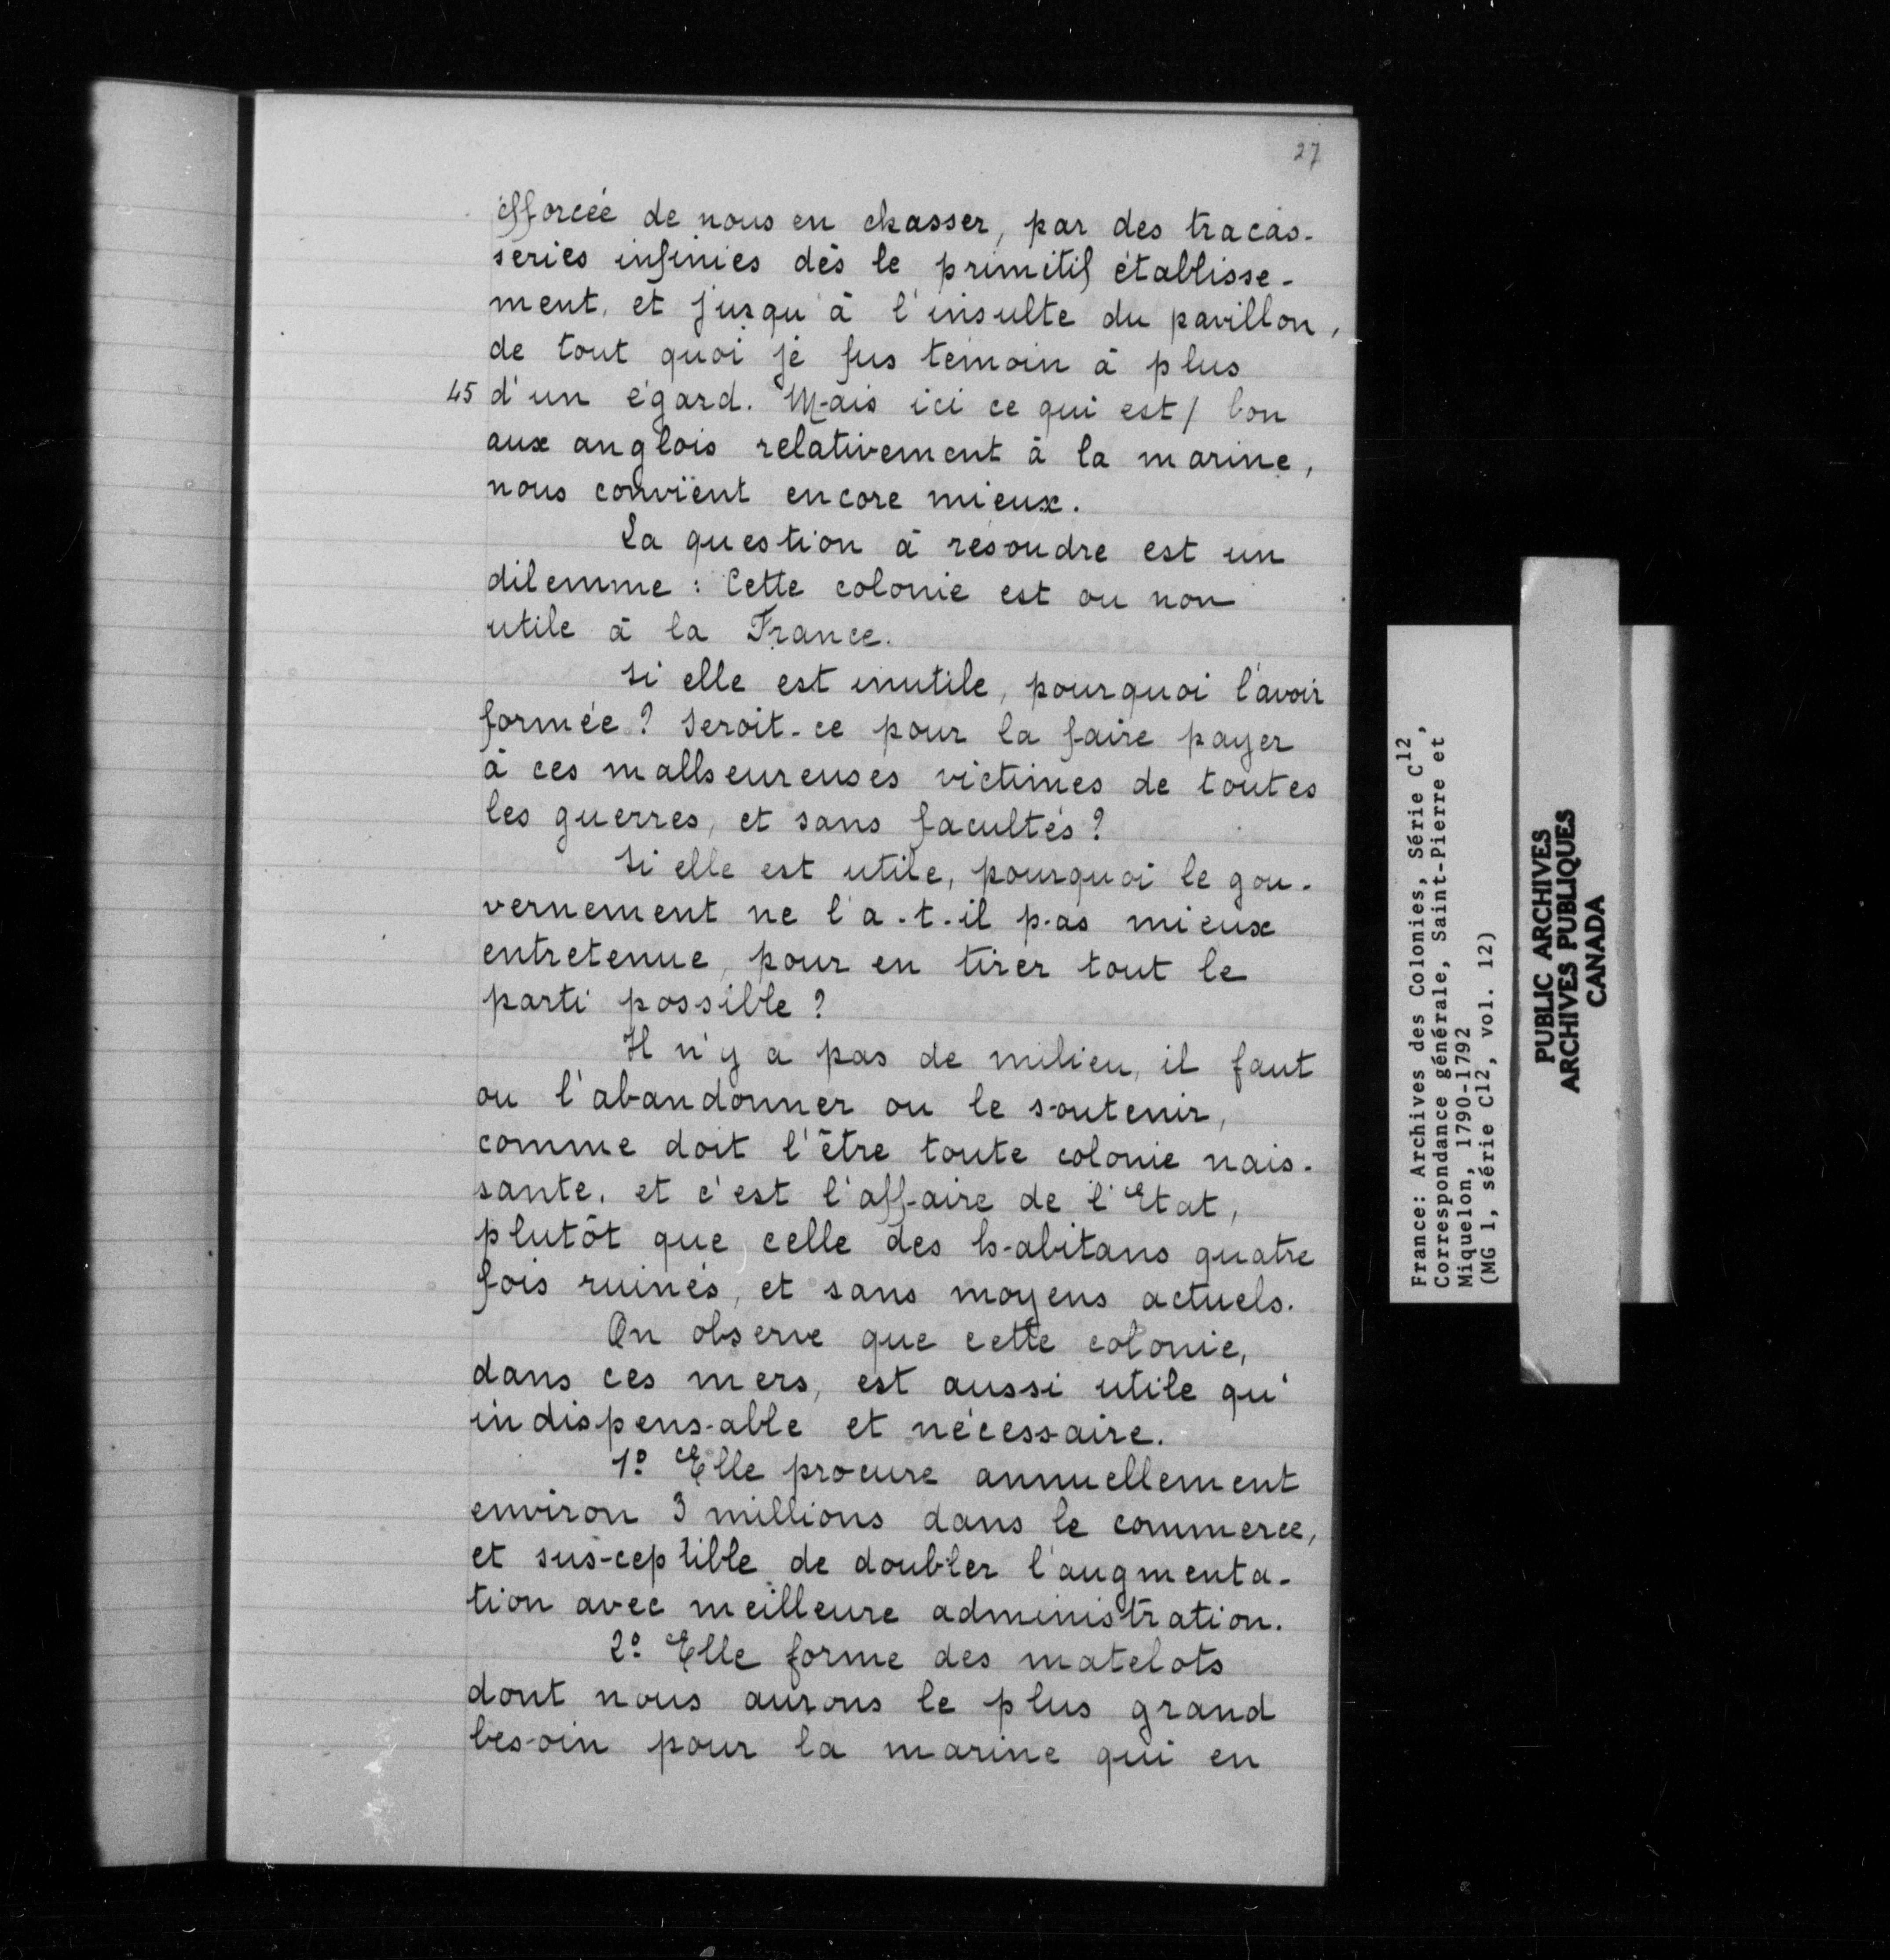 27
efforcée de nous en chasser, par des tracas-
series infinies dès le primitif établisse-
ment, et jusqu'à l'insulte du pavillon,
de tout quoi je fus témoin à plus
45 d'un égard. Mais ici ce qui est / bon
aux anglois relativement à la marine,
nous convient encore mieux.
La question à résoudre est un
dilemme : Cette colonie est ou non
utile à la France.
Si elle est inutile, pourquoi l'avoir
formée ? Seroit-ce pour la faire payer
à ces malheureuses victimes de toutes
les guerres, et sans facultés ?
Si elle est utile, pourquoi le gou-
vernement ne l'a-t-il pas mieux
entretenue, pour en tirer tout le
parti possible ?
Il n'y a pas de milieu, il faut
ou l'abandonner ou le soutenir,
comme doit l'être toute colonie nais-
sante, et c'est l'affaire de l'Etat,
plutôt que celle des habitans quatre
fois ruinés, et sans moyens actuels.
On observe que cette colonie,
dans ces mers, est aussi utile qu'
indispensable et nécessaire.
1º Elle procure annuellement
environ 3 millions dans le commerce,
et susceptible de doubler l'augmenta-
tion avec meilleure administration.
2º Elle forme des matelots
dont nous aurons le plus grand
besoin pour la marine qui en
France: Archives des Colonies, Série C12,
Correspondance générale, Saint-Pierre et
Miquelon, 1790-1792
(MG 1, série C12, vol. 12)
PUBLIC ARCHIVES
ARCHIVES PUBLIQUES
CANADA